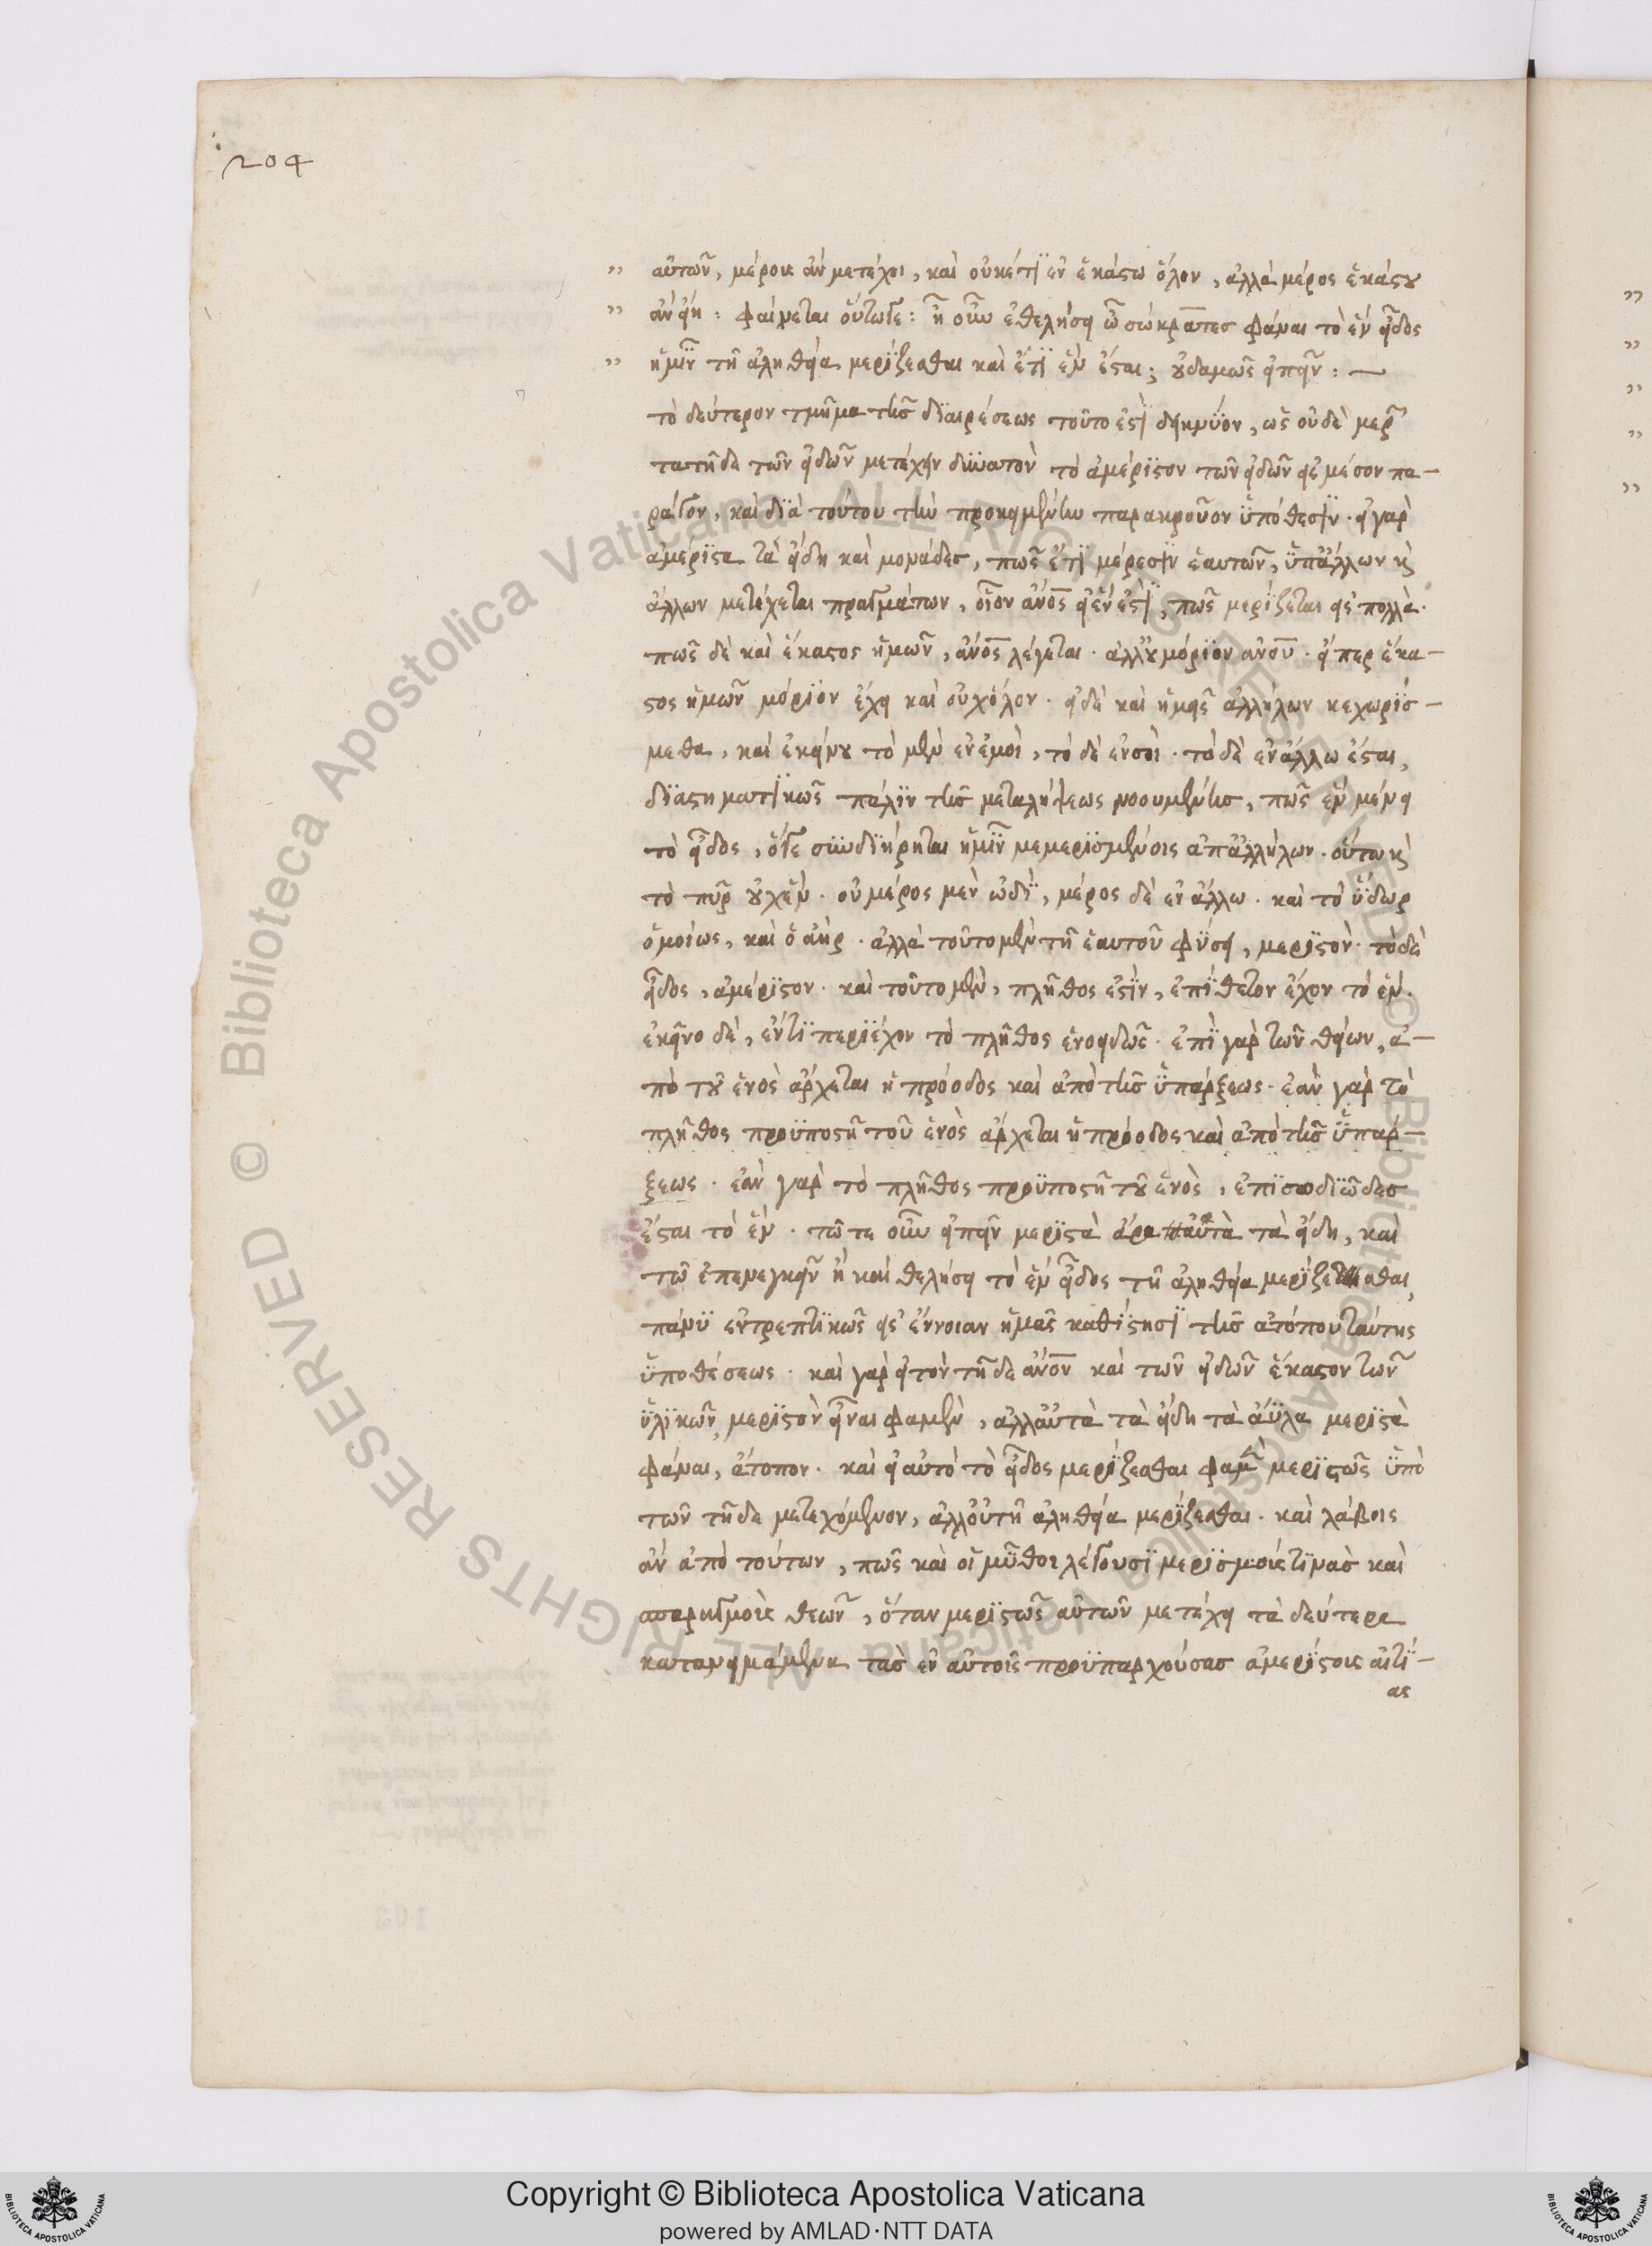 204
" αὐτῶν, μέρους ἂν μετέχοι, καὶ οὐκέτι ἐν ἑκάστω ὅλον, ἀλλὰ μέρος ἑκάστου
" ἂν εἴη: φαίνεται οὕτωγε: ἦ οὖν ἐθελήσει ὦ σώκρατες φάναι τὸ ἓν εἶδος
" ἡμῖν τῆ ἀληθεία μερίζεσθαι καὶ ἔτι ἓν ἔσται; οὐδαμῶς εἰπεῖν: —
τὸ δεύτερον τμῆμα τῆς διαιρέσεως τοῦτο ἐστὶ δεικνύον, ὡς οὐδὲ μερ
τατῆδε τῶν εἰδῶν μετέχειν δυνατὸν τὸ ἀμέριστον τῶν εἰδῶν εἰς μέσον πα-
ράγον, καὶ διὰ τούτου τὴν προκειμένην παρακροῦον ὑπόθεσιν. εἰ γὰρ
ἀμέριστα τὰ εἴδη καὶ μονάδες, πῶς ἔτι μέρεσιν ἑαυτῶν, ὑπἄλλων κ
ἄλλων μετέχεται πραγμάτων, οἷον ἄνος εἰ ἕν ἐστι, πῶς μερίζεται εἰς πολλὰ.
πῶς δὲ καὶ ἕκαστος ἡμῶν, ἄνος λέγεται. ἀλλοὐ μόριον ἀνου. εἴπερ ἕκα-
στος ἡμῶν μόριον ἔχει καὶ οὐχ ὅλον. εἰ δὲ καὶ ἡμεῖς ἀλλήλων κεχωρίσ-
μεθα, καὶ ἐκείνου τὸ μὲν ἐν ἐμοὶ, τὸ δὲ ἐν σοὶ. τὸ δὲ ἐν ἄλλω ἔσται,
διαστηματικῶς πάλιν τῆς μεταλήψεως νοουμένης, πῶς ἓν μένει
τὸ εἶδος, ὅγε συνδιήρηται ἡμῖν μεμερισμένοις ἀπἀλλήλων. οὕτω κ
τὸ πῦρ οὐχ ἓν. οὐ μέρος μὲν ὡδὶ, μέρος δὲ ἐν ἄλλω. καὶ τὸ ὕδωρ
ὁμοίως, καὶ ὁ ἀὴρ. ἀλλὰ τοῦτο μὲν τῆ ἑαυτοῦ φύσει, μεριστὸν. τὸ δὲ
εἶδος, ἀμέριστον. καὶ τοῦτο μὲν, πλῆθος ἐστὶν, ἐπίθετον ἔχον τὸ ἓν.
ἐκεῖνο δὲ, ἕν τι περιέχον τὸ πλῆθος ἑνοειδῶς. ἐπὶ γὰρ τῶν θείων, ἀ-
πὸ τοῦ ἑνὸς ἄρχεται ἡ πρόοδος καὶ ἀπὸ τῆς ὑπάρξεως. ἐὰν γὰρ τὸ
πλῆθος προϋποστῆ τοῦ ἑνὸς ἄρχεται ἡ πρόοδος καὶ ἀπὸ τῆς ὑπάρ-
ξεως. ἐὰν γὰρ τὸ πλῆθος προϋποστῆ τοῦ ἑνὸς, ἐπισωδιῶδες
ἔσται τὸ ἓν. τῶ τε οὖν εἰπεῖν μεριστὰ ἄρα αὐτὰ τὰ εἴδη, καὶ
τῶ ἐπενεγκεῖν ἢ καὶ θελήσει τὸ ἓν εἶδος τῆ ἀληθεία μερίζεσθαι,
πάνυ ἐντρεπτικῶς εἰς ἔννοιαν ἡμᾶς καθίστησι τῆς ἀτόπου ταύτης
ὑποθέσεως. καὶ γὰρ εἰ τὸν τῆδε ἄνον καὶ τῶν εἰδῶν ἕκαστον τῶν
ὑλικῶν, μεριστὸν εἶναι φαμὲν, ἀλλαὐτὰ τὰ εἴδη τὰ ἄϋλα μεριστὰ
φάναι, ἄτοπον. καὶ εἰ αὐτὸ τὸ εἶδος μερίζεσθαι φαμὲν μεριστῶς ὑπὸ
τῶν τῆδε μετεχόμενον, ἀλλοὐ τῆ ἀληθεία μερίζεσθαι. καὶ λάβοις
ἂν ἀπὸ τούτων, πῶς καὶ οἱ μῦθοι λέγουσι μερισμούς τινὰς καὶ
σπαραγμοὺς θεῶν, ὅταν μεριστῶς αὐτῶν μετέχη τὰ δεύτερα
κατανειμάμενα τὰς ἐν αὐτοῖς προϋπαρχούσας ἀμερίστους αἰτί-
ας
© Biblioteca Apostolica Vaticana ALL RIGHTS RESERVED
© Biblioteca Apostolica Vaticana ALL RIGHTS RESERVED
Copyright © Biblioteca Apostolica Vaticana
powered by AMLAD·NTT DATA
BIBLIOTECA APOSTOLICA VATICANA
BIBLIOTECA APOSTOLICA VATICANA